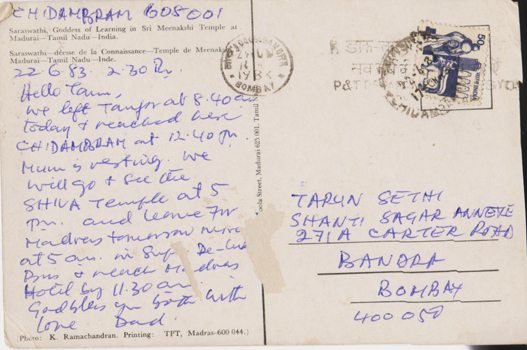 CHIDAMBRAM 605001
Saraswathi, Goddess of Learning in Sri Meenakshi Temple at
Madurai—Tamil Nadu—India.
Saraswathi—déesse de la Connaissance—Temple de Meenakshi
Madurai—Tamil Nadu—Inde.
22.6.83. 2.30 Pm.
Hello Tarun,
We left Tanjor at 8.40 am
today & reached here
CHIDAMBRAM at 12.40 pm.
Mum is resting. We
will go & see the
SHIVA Temple at 5
pm. and leave for
Madras tomorrow
at 5 am. in Sup. De-luxe
Bus & reach Madras
Hotel by 11.30 am.
God bless you both with
love Dad.
Photo: K. Ramachandran. Printing: TPT, Madras-600 044.)
Street, Madurai 625 001, Tamil
BOMBAY
50
P&T
TARUN SETHI
SHANTI SAGAR ANNEXE
271A CARTER ROAD
BANDRA
BOMBAY
400050